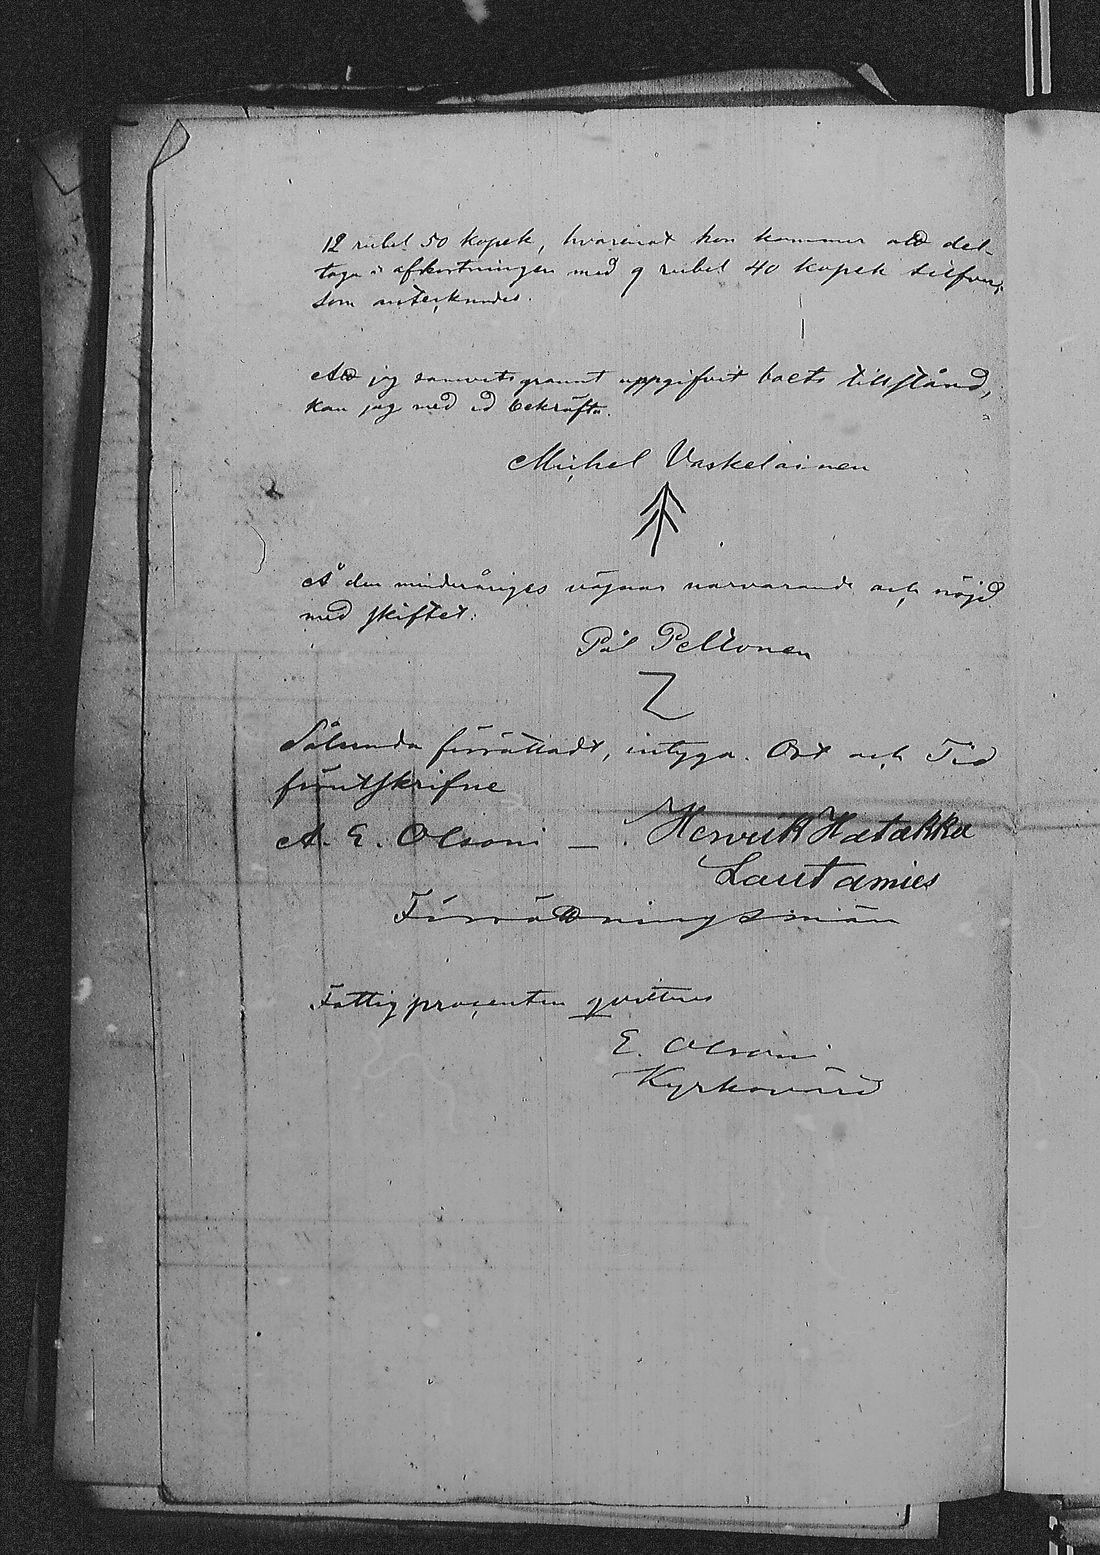 12 rubel 50 kopek, hvaremot hon kommer att del-
taga i afkortningen med 9 rubel 40 kopek silfver,
som antecknades.
Att jag samvetsgrannt uppgifvit boets tillstånd,
kan jag med ed bekräfta.
Michel Vaskelainen
Å den minderåriges vägnar närvarande och nöjd
med skiftet:
Pål Peltonen
Sålunda förrättadt, intyga. Ort och Tid
förutskrifne
A. E. Olsoni — . Henrik Hatakka
Lautamies
Förrättningsmän
Fattigprocenten qvitteras
E. Olsoni
Kyrkovärd